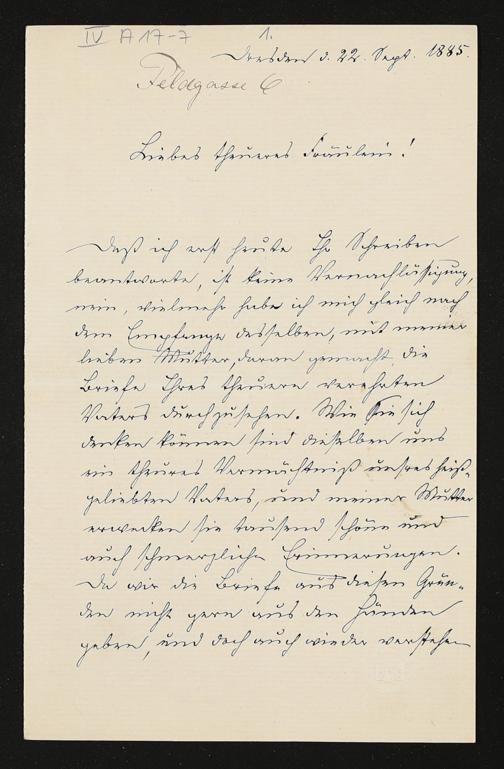 IV A 17-7
1.
Dresden d. 22. Sept. 1885.
Feldgasse 6
Liebes theueres Fräulein!
Daß ich erst heute Ihr Schreiben
beantworte, ist keine Vernachlässigung,
nein, vielmehr habe ich mich gleich nach
dem Empfange desselben, mit meiner
lieben Mutter, daran gemacht die
Briefe Ihres theuern verehrten
Vaters durchzusehen. Wie Sie sich
denken können sind dieselben uns
ein theures Vermächtniß unsres heiß-
geliebten Vaters, und meiner Mutter
erwecken sie tausend schöne und
auch schmerzliche Erinnerungen.
Da wir die Briefe aus diesen Grün-
den nicht gern aus den Händen
geben, und doch auch wieder verstehen